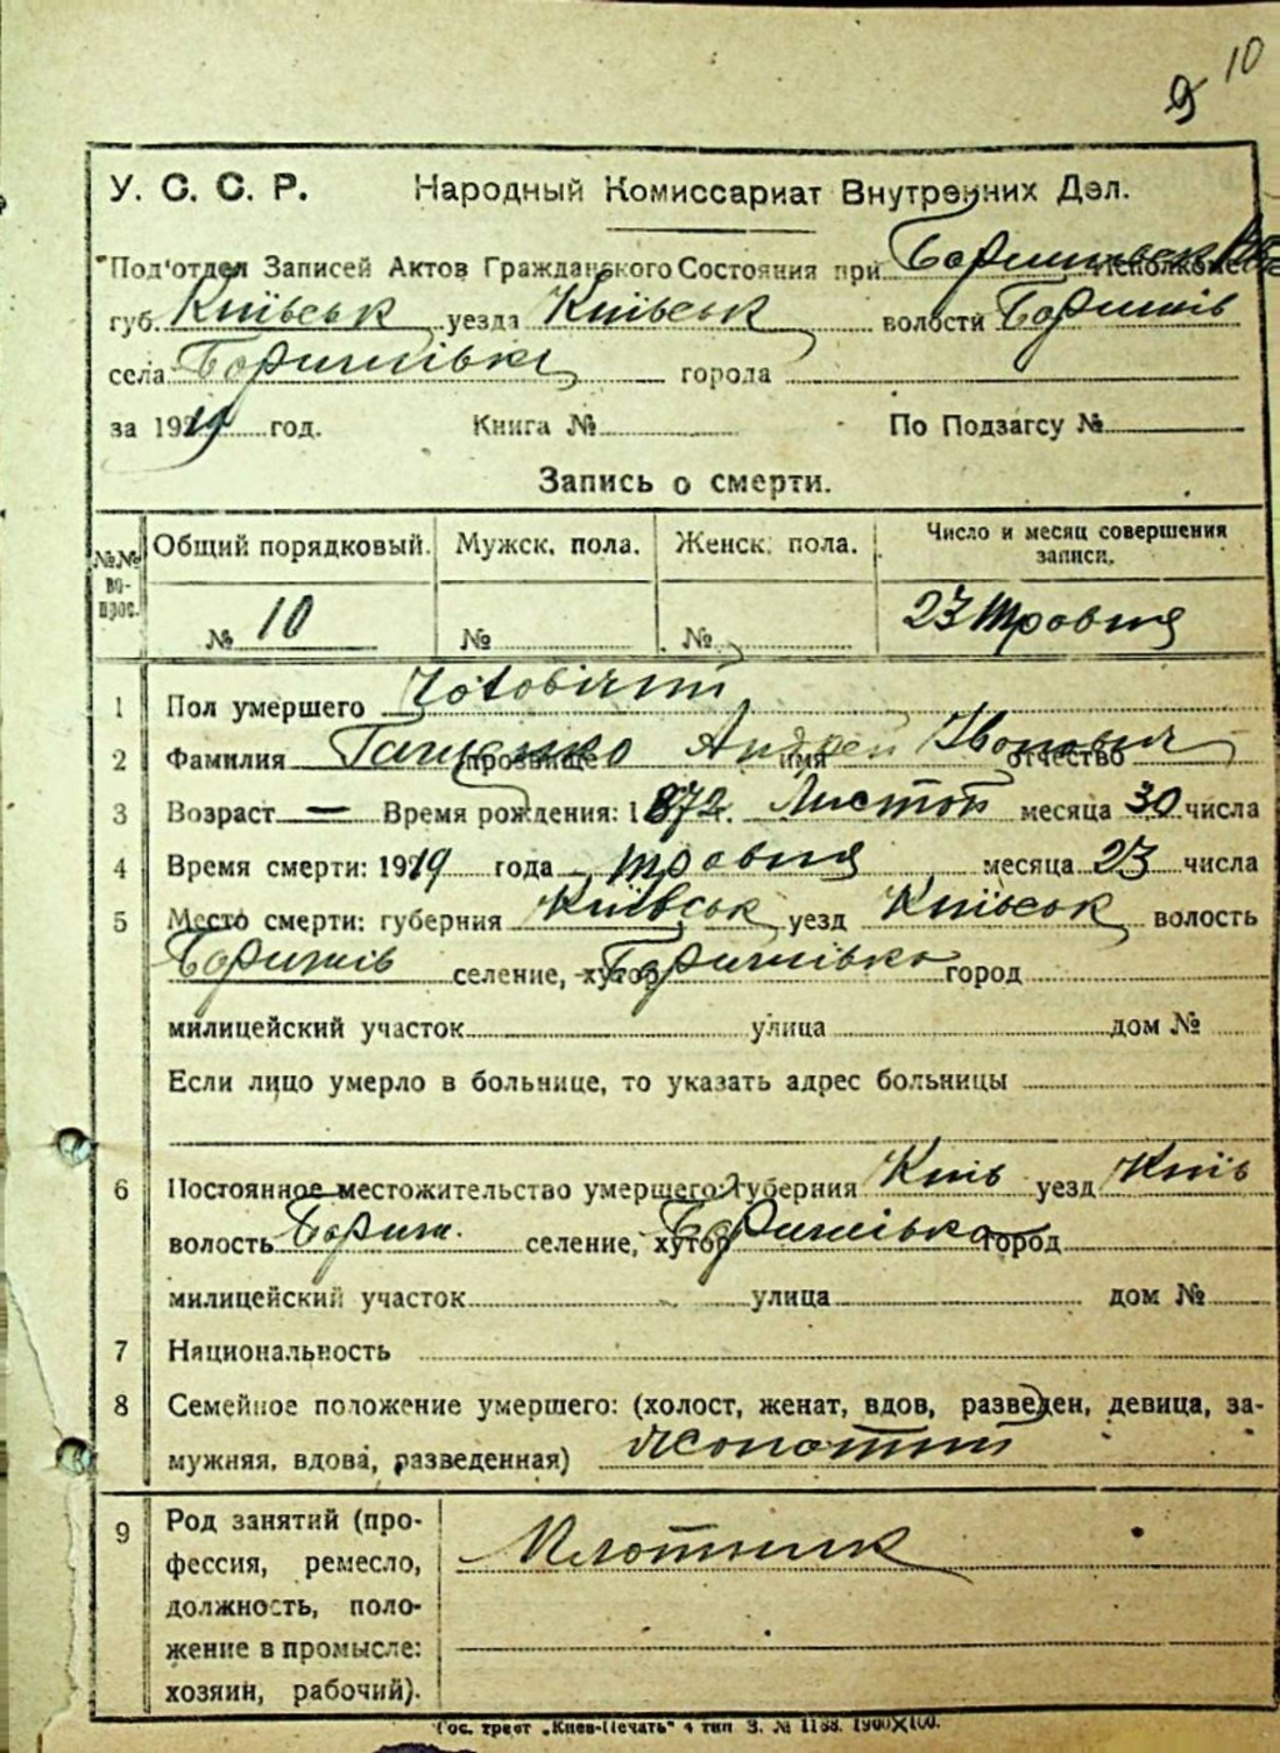 9 10
У. С. С. Р. Народный Комиссариат Внутренних Дел.
Под'отдел Записей Актов Гражданского Состояния при Исполкоме
губ. Київськ уезда Київськ волости Боришів
села Боришівки города
за 1919 год. Книга № По Подзагсу №
Запись о смерти.
№№ вопрос. Общий порядковый. Мужск. пола. Женск. пола. Число и месяц совершения записи.
№ 10 № № 23 травня
1 Пол умершего Чоловічий
2 Фамилия прозвище Андрей имя Іванович отчество
3 Возраст — Время рождения: 1872. Листоп месяца 30 числа
4 Время смерти: 1919 года травня месяца 23 числа
5 Место смерти: губерния Київськ уезд Київськ волость
Боришів селение, хутор Боришівка город
милицейский участок улица дом №
Если лицо умерло в больнице, то указать адрес больницы
6 Постоянное местожительство умершего: губерния Київ уезд Київ
волость Бориш. селение, хутор Боришівка город
милицейский участок улица дом №
7 Национальность
8 Семейное положение умершего: (холост, женат, вдов, разведен, девица, за-
мужняя, вдова, разведенная) жонатий
9 Род занятий (про- Плотник
фессия, ремесло,
должность, поло-
жение в промысле:
хозяин, рабочий).
Гос. трест „Киев-Печать" 4 тип З. № 1188. 1900×100.